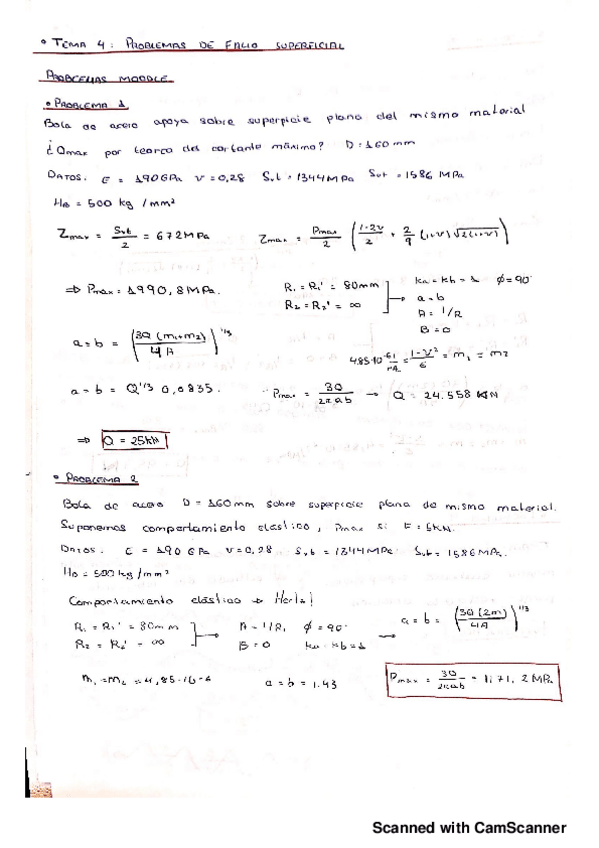 • TEMA 4: PROBLEMAS DE FALLO SUPERFICIAL
PROBLEMAS MOODLE
• PROBLEMA 1
Bola de acero apoya sobre superficie plana del mismo material
¿Qmax por teoria del cortante máximo? D = 160 mm
DATOS: E = 190 GPa ν = 0,28 Syt = 1344 MPa Sut = 1586 MPa
HB = 500 kg/mm²
Zmax = Syt/2 = 672 MPa Zmax = Pmax/2 (1-2ν/2 + 2/9 (1+ν)√2(1+ν))
⇒ Pmax = 1990,8 MPa. R1 = R1' = 80mm R2 = R2' = ∞ → ka = kb = 1 φ = 90° a = b A = 1/R B = 0
a = b = (3Q (m1+m2)/4A)^1/3 4.85·10^-61/MPa = 1-ν²/E = m1 = m2
a = b = Q^1/3 0,0835. Pmax = 3Q/2πab → Q = 24.558 kN
⇒ Q = 25kN
• PROBLEMA 2
Bola de acero D = 160mm sobre superficie plana de mismo material.
Suponemos comportamiento elástico, Pmax si F = 5kN.
Datos. E = 190 GPa ν = 0,28 Syt = 1344 MPa Sut = 1586 MPa.
HB = 500 kg/mm²
Comportamiento elástico → Hertz!
R1 = R1' = 80mm R2 = R2' = ∞ → A = 1/R1 φ = 90° B = 0 ka = kb = 1 → a = b = (3Q (2m)/4A)^1/3
m1 = m2 = 4,85·10-6 a = b = 1.43 Pmax = 3Q/2πab = 1171,2 MPa
Scanned with CamScanner